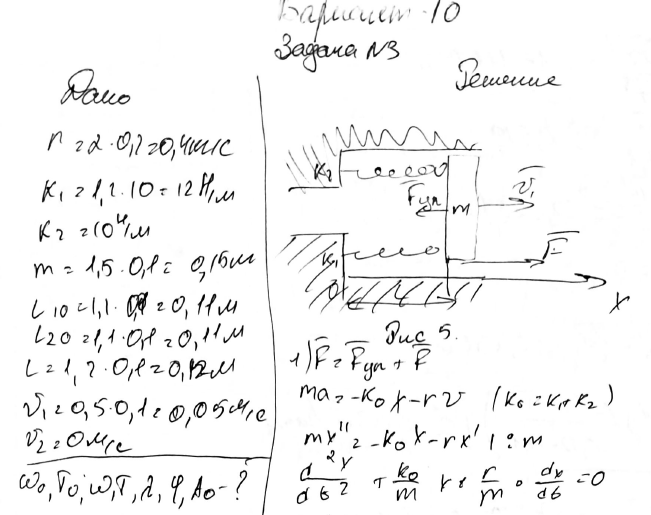 Вариант-10
Задача №3
Дано
Решение
r = 2 · 0,2 = 0,4 кг/с
K₁ = 1,2 · 10 = 12 Н/м
K₂ = 10 Н/м
m = 1,5 · 0,1 = 0,15 м
L₁₀ = 1,1 · 0,1 = 0,11 м
L₂₀ = 1,1 · 0,1 = 0,11 м
L = 1,2 · 0,1 = 0,12 м
V₁ = 0,5 · 0,1 = 0,05 м/с
V₂ = 0 м/с
ω₀, T₀, ω, T, λ, φ, A₀ - ?
K₂
Fуп
m
V₁
K₁
F
0
L
X
Рис 5.
1) F = Fуп + F
ma = -K₀x - rv (K₀ = K₁ + K₂)
mx'' = -K₀x - rx' | : m
d²x/dt² + K₀/m x + r/m · dx/dt = 0